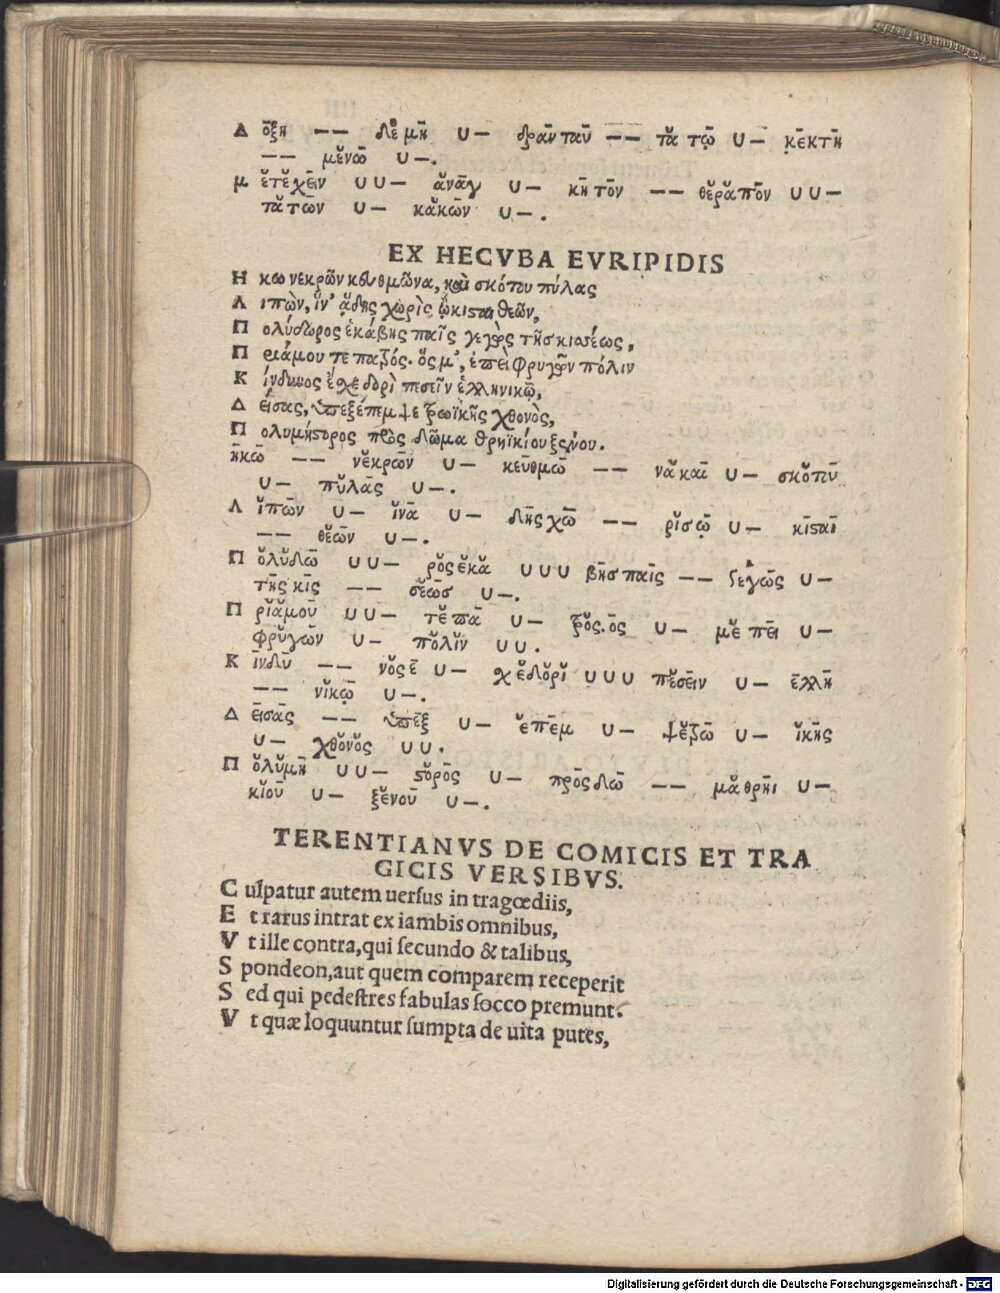 Δ ὄξῃ –– δὲ μὴ υ– δρᾶν ταυ –– τὰ τῷ υ– κεκτη
–– μένῳ υ–.
μ ετέχειν υυ– ἀνάγ υ– κη τὸν –– θεράπον υυ–
τα τῶν υ– κακῶν υ–.
EX HECVBA EVRIPIDIS
Η κω νεκρῶν κευθμῶνα, καὶ σκότου πύλας
Λ ιπὼν, ἵν' ᾅδης χωρὶς ᾤκισται θεῶν,
Π ολύδωρος ἑκάβης παῖς γεγὼς τῆς κισσέως,
Π ριάμου τε πατρός. ὅς μ', ἐπεὶ φρυγῶν πόλιν
Κ ίνδυνος ἔχε δορὶ πεσεῖν ἑλληνικῷ,
Δ είσας, ὑπεξέπεμψε τρωϊκῆς χθονὸς,
Π ολυμήστορος πρὸς δῶμα θρηϊκίου ξένου.
ἥκω –– νεκρῶν υ– κευθμῶ –– να καὶ υ– σκότου
υ– πύλας υ–.
Λ ιπὼν υ– ἵνα υ– δης χω –– ρὶς ᾤ υ– κισται
–– θεῶν υ–.
Π ολύδω υυ– ρος ἑκα υυυ βης παῖς –– γεγὼς υ–
τῆς κισ –– σέως υ–.
Π ριάμου υυ– τε πα υ– τρός. ὅς υ– μ' ἐπεὶ υ–
φρυγῶν υ– πόλιν υυ.
Κ ίνδυ –– νος ἔ υ– χε δορὶ υυυ πεσεῖν υ– ἑλλη
–– νικῷ υ–.
Δ είσας –– ὑπεξ υ– έπεμ υ– ψε τρω υ– ϊκῆς
υ– χθονὸς υυ.
Π ολυμή υυ– στορος υ– πρὸς δῶ –– μα θρηι υ–
κίου υ– ξένου υ–.
TERENTIANVS DE COMICIS ET TRA
GICIS VERSIBVS.
C ulpatur autem uersus in tragœdiis,
E t rarus intrat ex iambis omnibus,
V t ille contra, qui secundo & talibus,
S pondeon, aut quem comparem receperit
S ed qui pedestres fabulas socco premunt.
V t quæ loquuntur sumpta de uita putes,
Digitalisierung gefördert durch die Deutsche Forschungsgemeinschaft - DFG